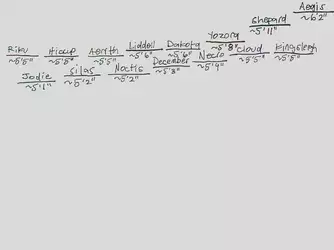 Aegis
~6'2"
Shepard
~5'11"
Yozora
~5'8"
Riku
~5'5"
Hiccup
~5'5"
Aerith
~5'5"
Liddell
~5'6"
Dakota
~5'6"
December
~5'8"
Neclo
~5'9"
Cloud
~5'5"
Kingsleigh
~5'5"
Jodie
~5'1"
Silas
~5'2"
Noctis
~5'2"